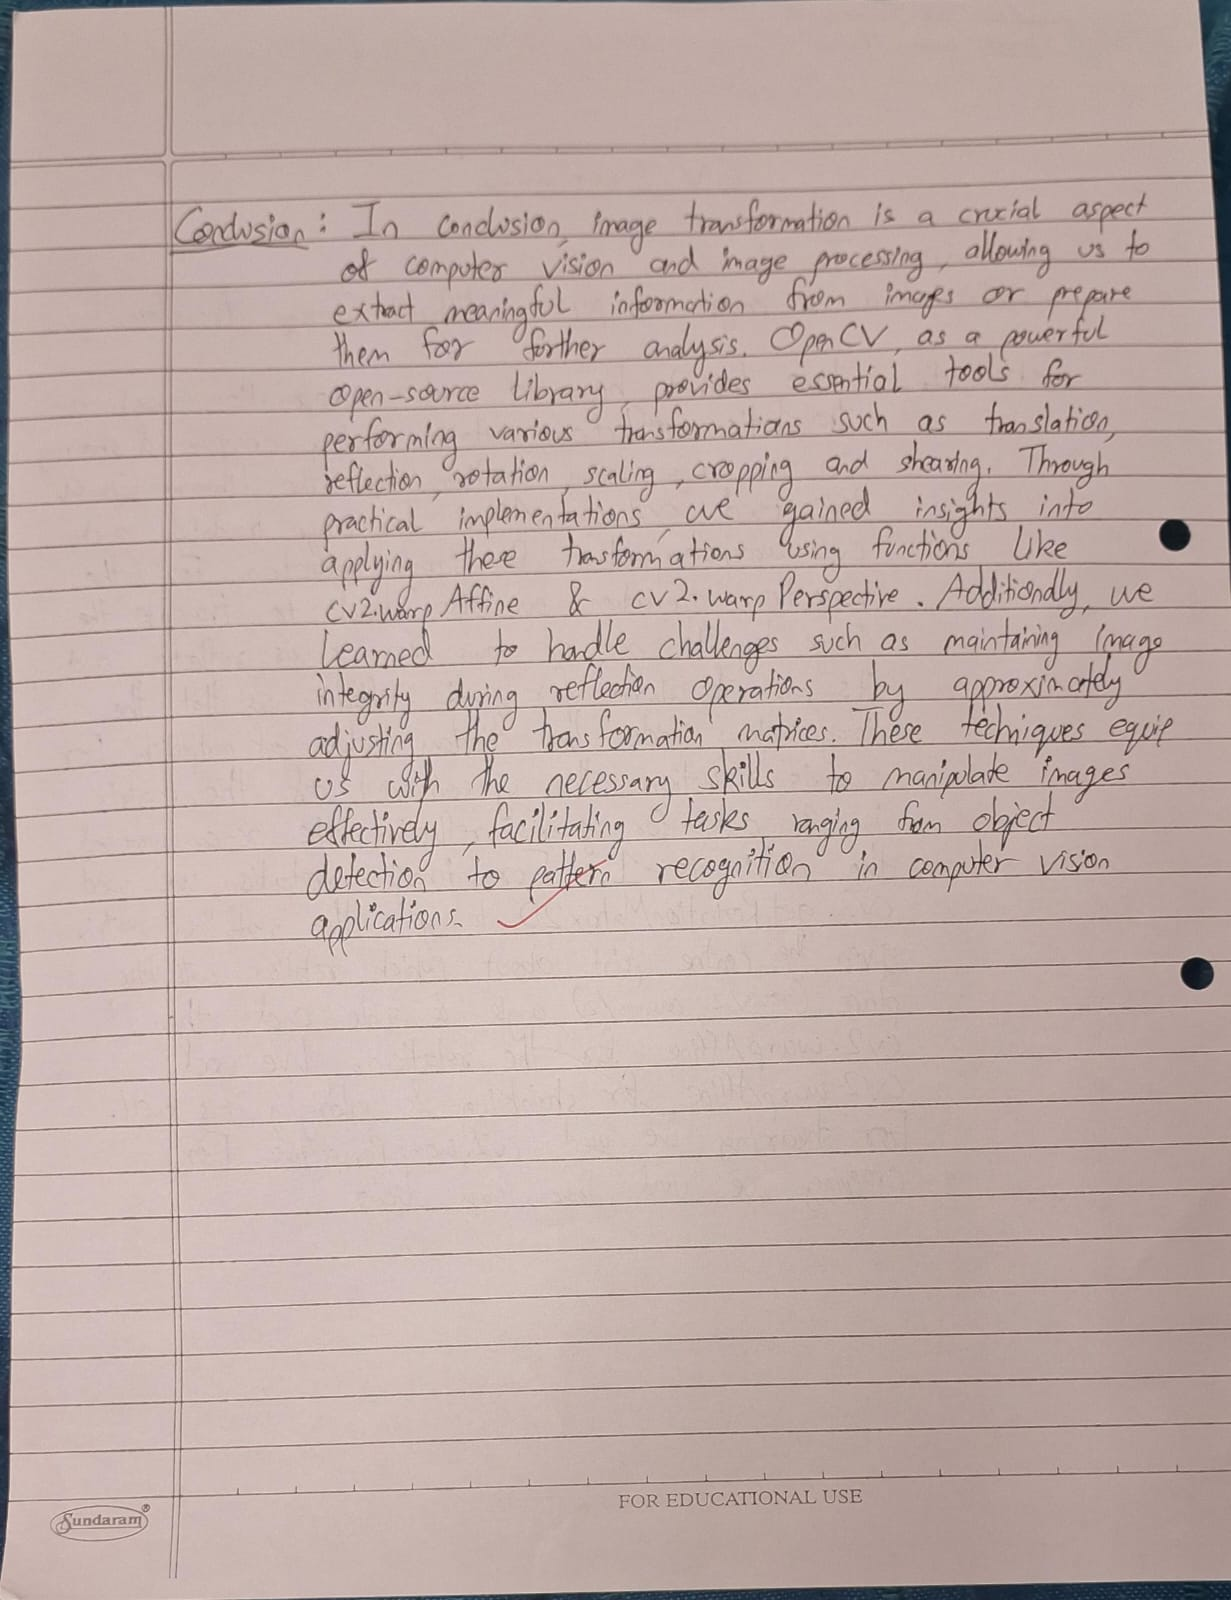 Conclusion: In conclusion, image transformation is a crucial aspect
of computer vision and image processing, allowing us to
extract meaningful information from images or prepare
them for further analysis. OpenCV, as a powerful
open-source library, provides essential tools for
performing various transformations such as translation,
reflection, rotation, scaling, cropping and shearing. Through
practical implementations, we gained insights into
applying these transformations using functions like
cv2.warpAffine & cv2.warpPerspective. Additionally, we
learned to handle challenges such as maintaining image
integrity during reflection operations by approximately
adjusting the transformation matrices. These techniques equip
us with the necessary skills to manipulate images
effectively, facilitating tasks ranging from object
detection to pattern recognition in computer vision
applications.
FOR EDUCATIONAL USE
Sundaram®